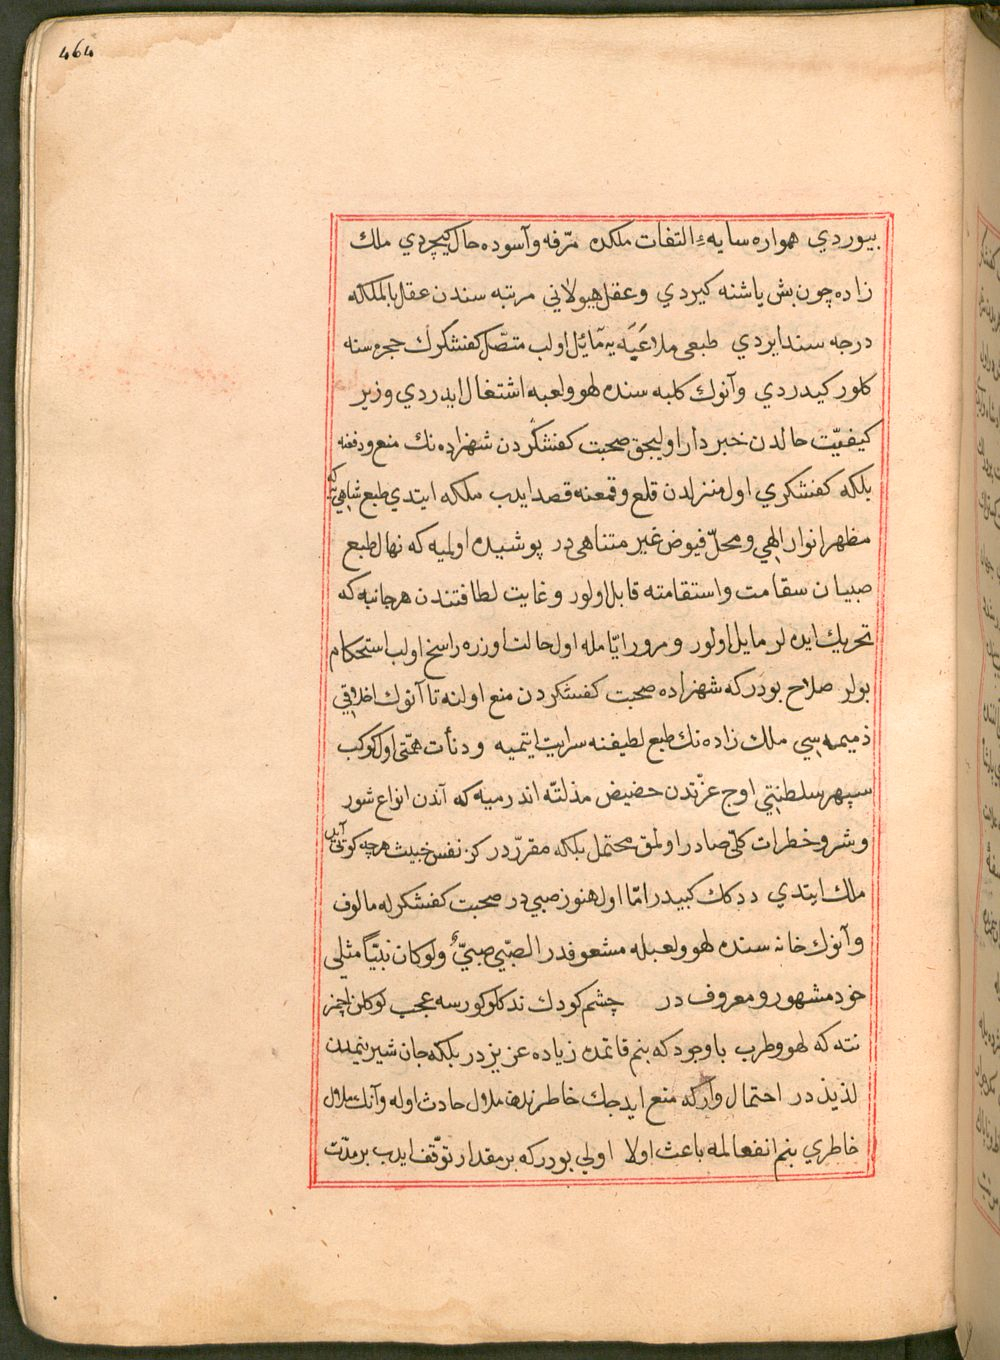 464
بيوردي همواره سايهء التفات ملكده مرّفه وآسوده حال كيچردي ملك
زاده چون بش ياشنه كيردي وعقل هيولاني مرتبه سندن عقل بالملكه
درجه سنه ايردي طبعى ملاعَبَه يه مآئيل اولب متصّل كفشكرك حجره سنه
كلور كيدردي وآنوك كلبه سنده لهو ولعبه اشتغال ايدردي وزير
كيفيّت حالدن خبردار اوليجق صحبت كفشكردن شهزاده نك منع ودفعنه
بلكه كفشكري اول منزلدن قلع وقمعنه قصد ايدب ملكه ايتدي طبع شاهي كه
مظهر انوار الهي ومحلّ فيوض غير متناهى در پوشيده اولميه كه نهال طبع
صبيان سقامت واستقامته قابل اولور وغايت لطافتندن هر جانبه كه
تحريك ايده لر مايل اولور ومرور ايّامله اول حالت اوزره راسخ اولب استحكام
بولر صلاح بودر كه شهزاده صحبت كفشكردن منع اولنه تا آنوك اخلاقي
ذميمه سي ملك زاده نك طبع لطيفنه سرايت ايتميه ودنأت همّتى اول كوكب
سپهر سلطنتي اوج عزّتدن حضيض مذلتّه اندرميه كه آندن انواع شور
وشر وخطرات كلّي صادر اولمق محتمل بلكه مقرّر در كز نفس خبيث هرچه كوئى آيد
ملك ايتدي ددكك كبيدر امّا اول هنوز صبي در صحبت كفشكرله مالوف
وآنوك خانه سنده لهو ولعبله مشعوفدر الصبّي صبيّ ولوكان نبيّا مثلى
خود مشهور ومعروف در چشم كودك ند كلو كورسه عجب كوكلن اچز
نته كه لهو وطرب باوجود كه بنم قاتمده زياده عزيز در بلكه جان شيرينمدن
لذيذ در احتمال وآر كه منع ايدجك خاطرنده ملال حادث اوله وآنك ملال
خاطري بنم انفعالمه باعث اولا اولي بودر كه بر مقدار توّقف ايدب بر مدّت